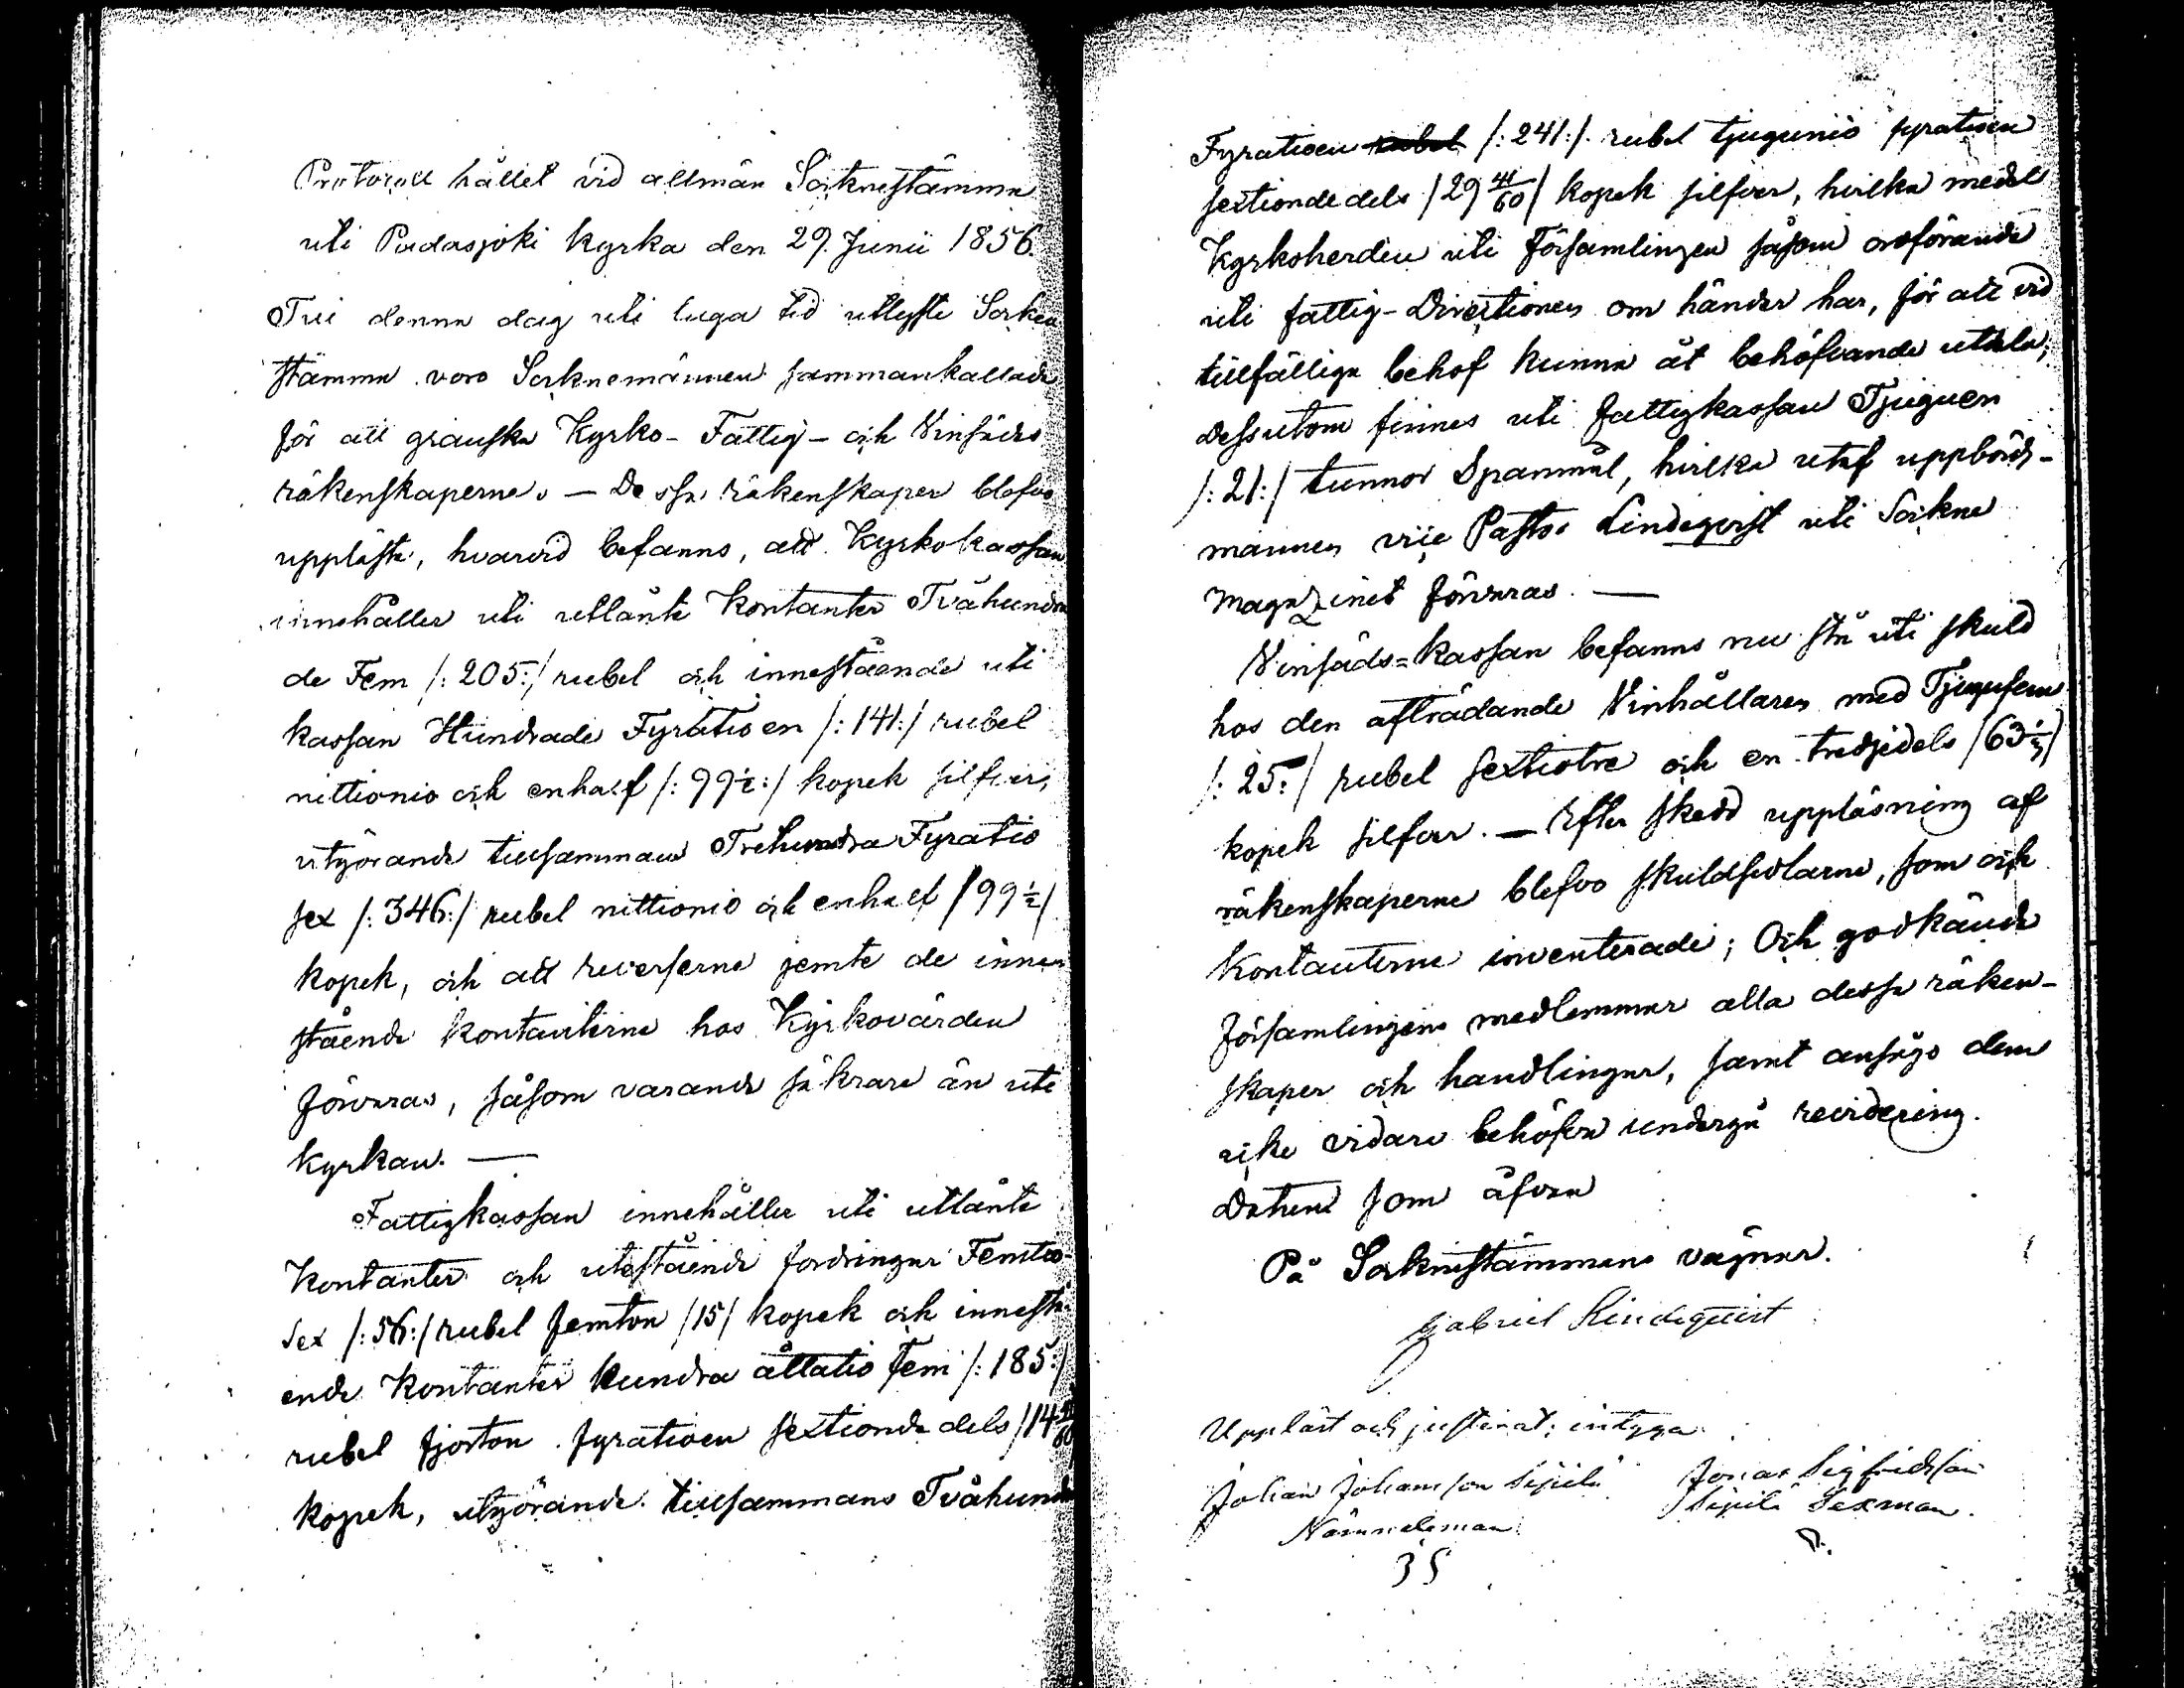 Protocoll hållet vid allmän Socknestämma
uti Padasjoki Kyrka den 29. Junii 1856.
Till denna dag uti laga tid utlyste Sockne
stämma voro Socknemännen sammankallade
för att granska Kyrko- Fattig- och Vinsäds
räkenskaperne. — Dessa räkenskaper blefvo
uppläste, hvarvid befanns, att Kyrkokassan
innehåller uti utlånte Kontanter Tvåhundra
de Fem /: 205:/ rubel och innestående uti
kassan Hundrade Fyratioen /: 141:/ rubel
nittionio och enhalf /: 99½:/ kopek silfver,
utgörande tillsammans Trehundra Fyratio
sex /: 346:/ rubel nittionio och enhalf /99½/
kopek, och att reverserne jemte de inne
stående kontanterne hos Kyrkovärden
förvaras, såsom varande säkrare än uti
Kyrkan. —
Fattigkassan innehåller uti utlånte
Kontanter och utestående fordringar Femtio-
sex /: 56:/ rubel femton /15/ kopek och innestå-
ende Kontanter hundra åttatio fem /: 185:/
rubel fjorton fyratioen sextionde dels /14 41/60/
kopek, utgörande tillsammans Tvåhundra
Fyratioen rubel /: 241:/ rubel tjugunio fyratioen
sextionde dels /29 41/60/ kopek silfver, hvilka medel
Kyrkoherden uti Församlingen såsom ordförande
uti fattig-Directionen om händer har, för att vid
tillfälliga behof kunna åt behöfvande utdela;
dessutom finnes uti fattigkassan Tjuguen
/: 21:/ tunnor Spannmål, hvilka utaf uppbörds-
mannen vice Pastor Lindeqvist uti Sockne
magazinet förvaras. —
Vinsäds=Kassan befanns nu stå uti skuld
hos den afträdande Vinhållaren med Tjugufem
/: 25:/ rubel sextiotre och en tredjedels /63⅓/
kopek silfver. — Efter skedd uppläsning af
räkenskaperne blefvo skuldsedlarne, som och
Kontanterne inventerade; Och godkände
församlingens medlemmar alla dessa räken-
skaper och handlingar, samt ansågo dem
icke vidare behöfva undergå revidering.
Datum som äfvan
På Socknestämmans vägnar.
Gabriel Lindeqvist
Uppläst och justerat; intyga
Johan Johansson Sipilä Jonas Sigfridsson
Nämndeman Sipilä Sexman.